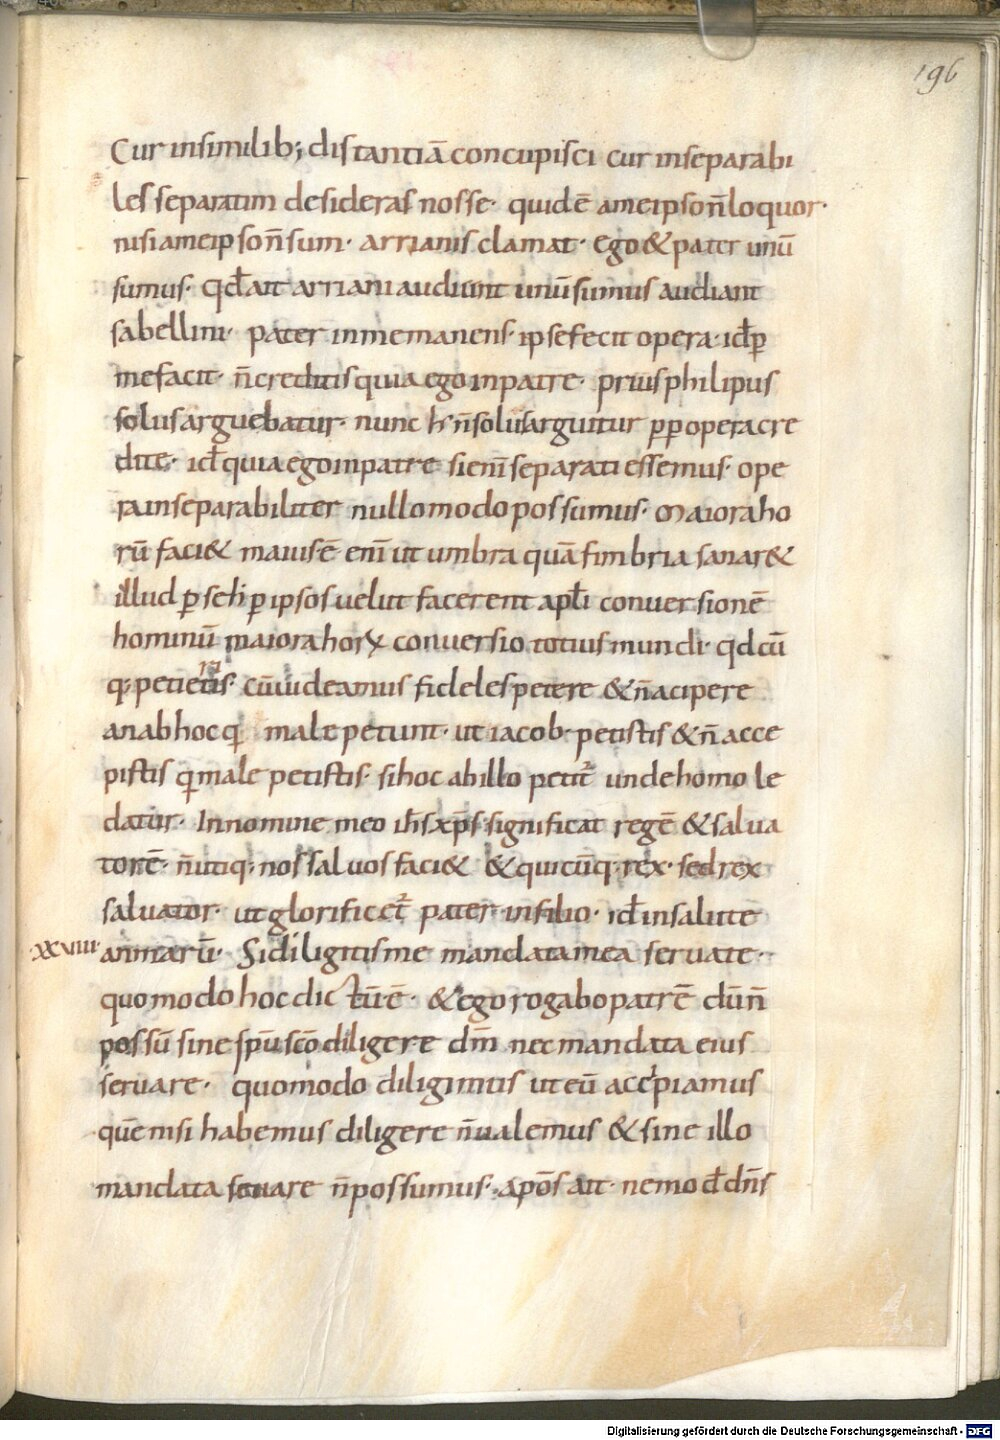 196
Cur insimilib; distantiā concupisci cur inseparabi
les separatim desideras nosse· quid ē ameipso n̄ loquor·
nisi ameipso n̄ sum· arrianis clamat· ego & pater unū
sumus· Qd̄ ait arriani audiunt unū sumus audiant
sabellini· pater inme manens· ipse fecit opera· id ꝑ
me facit· n̄ creditis quia ego inpatre· prius philipus
solus arguebatur· nunc h̄ n̄ solus arguitur ꝓꝑ opera cre
dite· id̄ quia ego inpatre si enī separati essemus· ope
ra inseparabiliter nullo modo possumus· Maiora ho
rū faci& maius ē enī ut umbra quā fimbria sanar&
illud ꝑ se h̄ ꝑ ipsos uelut facerent apłi conuersionē
hominū maiora horꝝ conuersio totius mundi· qd cū
q; petieritis· cū uideamus fideles petere & n̄ acipere
an ab hoc q̄ male petunt· ut iacob· petistis & n̄ acce
pistis q̄ male petistis· si hoc ab illo petit̄ unde homo le
datur· In nomine meo ih̄s xp̄s significat regē & salua
torē· n̄ utiq; nos saluos faci& & quicūq; rex· sed rex
saluator· ut glorificet̄ pater in filio· id̄ in salute
xxviiii animarū· Si diligitis me mandata mea seruate·
quomodo hoc dictū ē· & ego rogabo patrē dū n̄
possū sine sp̄u sc̄o diligere dm̄ nec mandata eius
seruare· quomodo diligimus ut eū accepiamus
quē nisi habemus diligere n̄ ualemus & sine illo
mandata seuare n̄ possumus· apōs ait· nemo d̄ dn̄s
Digitalisierung gefördert durch die Deutsche Forschungsgemeinschaft - DFG